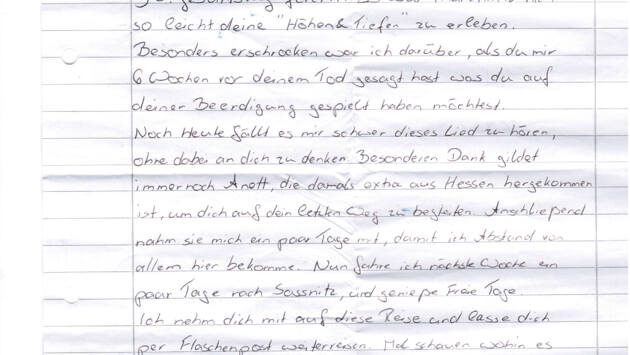 so leicht deine "Höhen & Tiefen" zu erleben.
Besonders erschrocken war ich darüber, als du mir
6 Wochen vor deinem Tod gesagt hast was du auf
deiner Beerdigung gespielt haben möchtest.
Noch Heute fällt es mir schwer dieses Lied zu hören,
ohne dabei an dich zu denken. Besonderen Dank gildet
immernoch Anett, die damals extra aus Hessen hergekommen
ist, um dich auf dein letzten Weg zu begleiten. Anschließend
nahm sie mich ein paar Tage mit, damit ich Abstand von
allem hier bekomme. Nun fahre ich nächste Woche ein
paar Tage nach Sassnitz, und genieße Freie Tage.
Ich nehm dich mit auf diese Reise und lasse dich
per Flaschenpost weiterreisen. Mal schauen wohin es